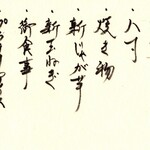 ・八寸
・焼き物
・新じゃが芋
・新玉ねぎ
・御食事